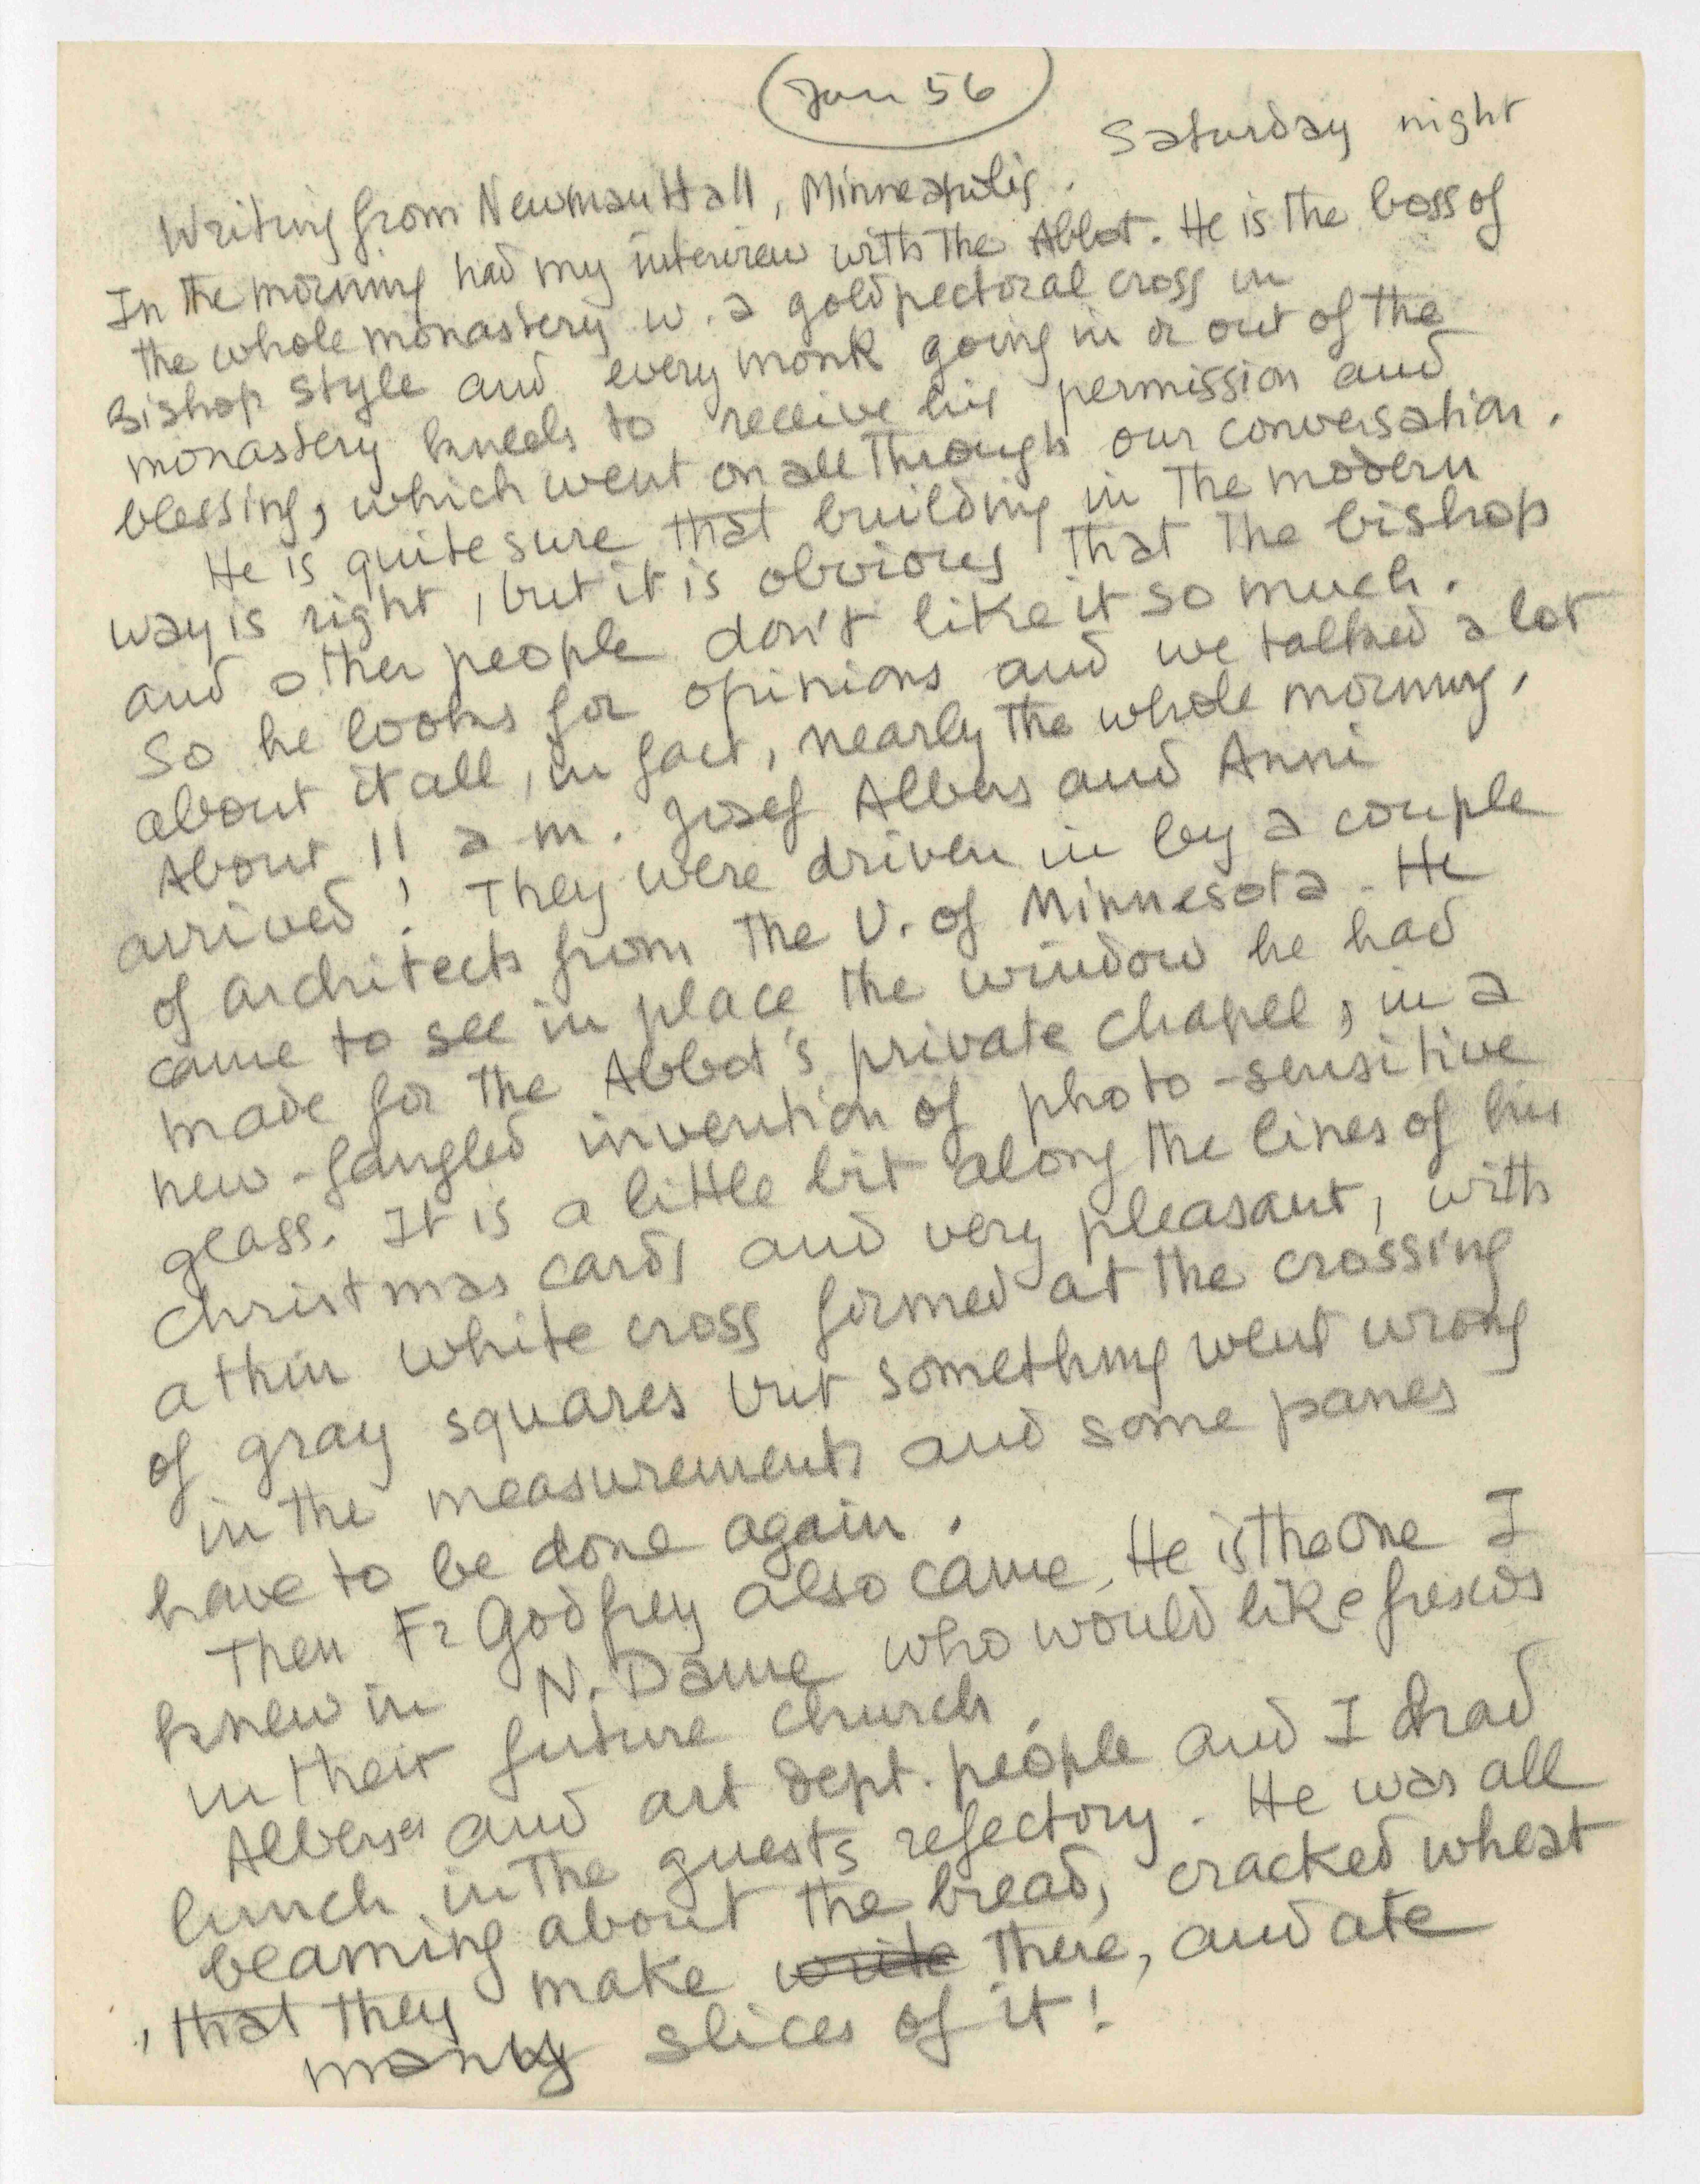 Jan 56
Saturday night
Writing from Newman Hall, Minneapolis.
In the morning had my interview with the Abbot. He is the boss of
the whole monastery w. a gold pectoral cross in
Bishop style and every monk going in or out of the
monastery kneels to receive his permission and
blessing, which went on all through our conversation.
He is quite sure that building in the modern
way is right, but it is obvious that the bishop
and other people don't like it so much.
So he looks for opinions and we talked a lot
about it all, in fact, nearly the whole morning.
About 11 a m. Josef Albers and Anni
arrived! They were driven in by a couple
of architects from the U. of Minnesota. He
came to see in place the window he had
made for the Abbot's private chapel, in a
new-fangled invention of photo-sensitive
glass. It is a little bit along the lines of his
christmas cards and very pleasant, with
a thin white cross formed at the crossing
of gray squares but something went wrong
in the measurements and some panes
have to be done again.
Then Fr Godfrey also came. He is the one I
knew in N. Dame who would like frescos
in their future church.
Alberses and art dept. people and I had
lunch in the guests refectory. He was all
beaming about the bread, cracked wheat
, that they make write there, and ate
many slices of it!